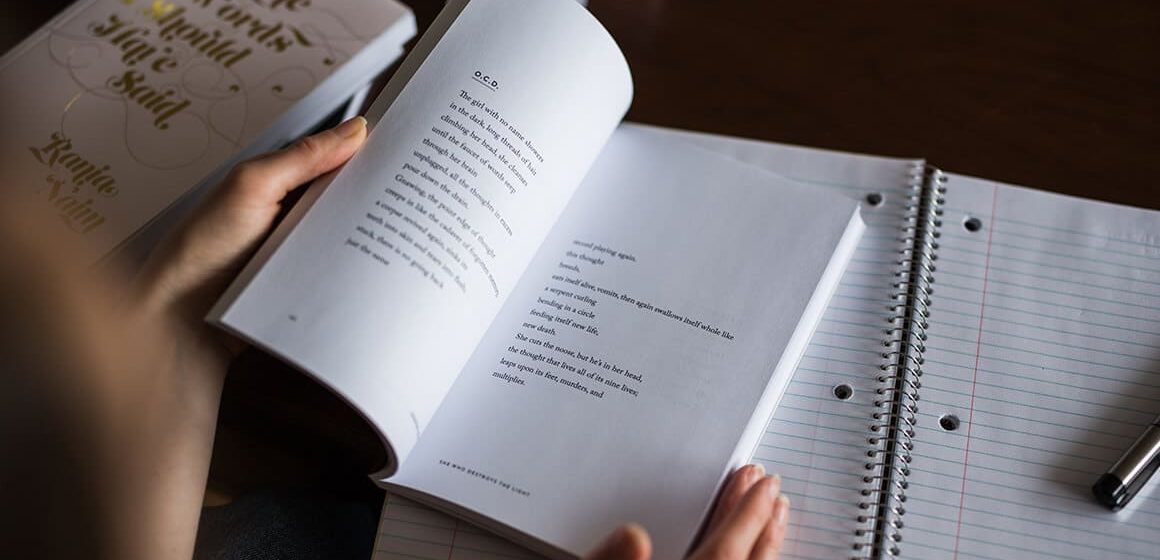 Words
I Should
Have
Said
Rania
Naim
O.C.D.
The girl with no name showers
in the dark, long threads of hair
climbing her head, she cleanses
until the faucet of words seep
through her brain
unplugged, all the thoughts in excess
pour down the drain.
Gnawing, the point edge of thought
creeps in like the cadaver of forgotten memory
a corpse revived again, sinks its
teeth into skin and tears into flesh,
stuck, there is no going back
just the same
record playing again.
this thought
breeds,
eats itself alive, vomits, then again swallows itself whole like
a serpent curling
bending in a circle
feeding itself new life,
new death.
She cuts the noose, but he's in her head,
the thought that lives all of its nine lives;
leaps upon its feet, murders, and
multiplies.
SHE WHO DESTROYS THE LIGHT